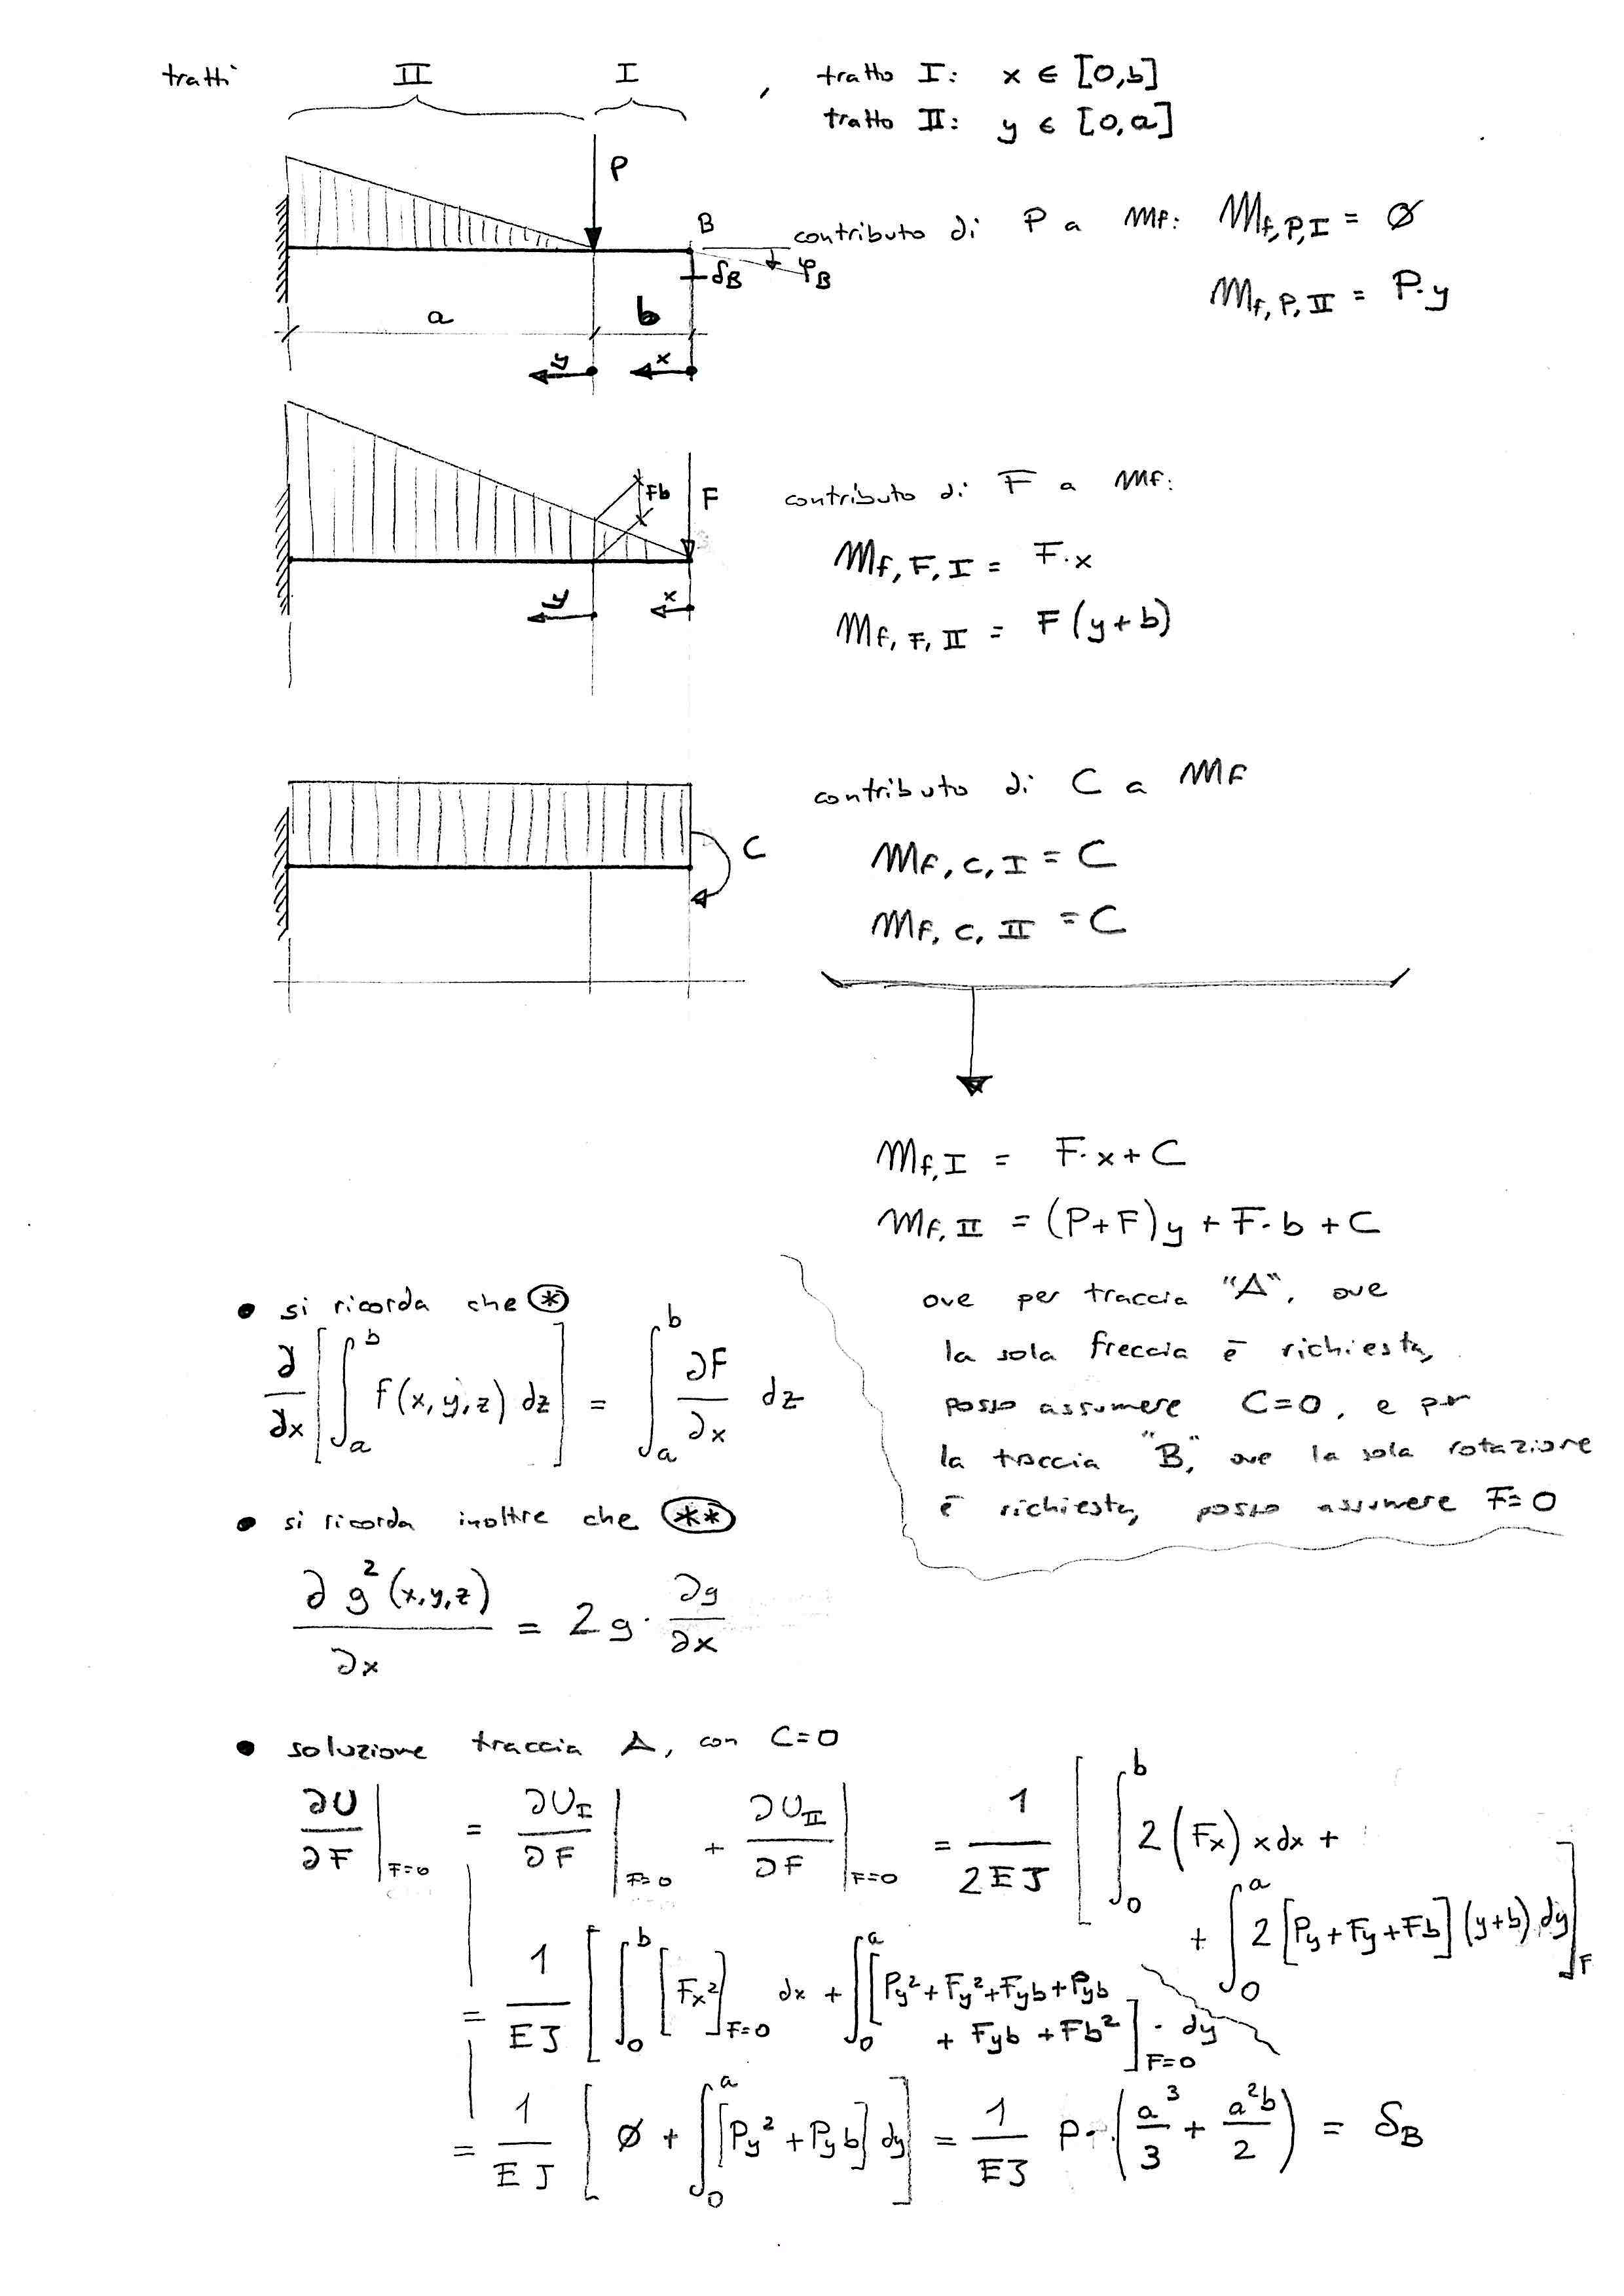 tratti II I , tratto I: x ∈ [0,b]
tratto II: y ∈ [0,a]
P
B
contributo di P a Mf: Mf,P,I = Ø
δB φB
Mf,P,II = P·y
a b
y x
contributo di F a Mf:
Fb F
Mf,F,I = F·x
y x
Mf,F,II = F(y+b)
contributo di C a Mf
C
Mf,C,I = C
Mf,C,II = C
Mf,I = F·x+C
Mf,II = (P+F)y + F·b + C
ove per traccia "A", ove
la sola freccia è richiesta,
posso assumere C=0, e per
la traccia "B", ove la sola rotazione
è richiesta, posso assumere F=0
• si ricorda che (*)
∂/∂x [∫_a^b f(x,y,z) dz] = ∫_a^b ∂F/∂x dz
• si ricorda inoltre che (**)
∂g²(x,y,z)/∂x = 2g·∂g/∂x
• soluzione traccia A, con C=0
∂U/∂F|F=0 = ∂U_I/∂F|F=0 + ∂U_II/∂F|F=0 = 1/2EJ [∫_0^b 2(Fx)xdx +
+ ∫_0^a 2[Py+Fy+Fb](y+b)dy]F
= 1/EJ [∫_0^b [Fx²]F=0 dx + ∫_0^a [Py²+Fy²+Fyb+Pyb
+ Fyb + Fb²]F=0 · dy
= 1/EJ [Ø + ∫_0^a [Py²+Pyb]dy] = 1/EJ P·(a³/3 + a²b/2) = δB